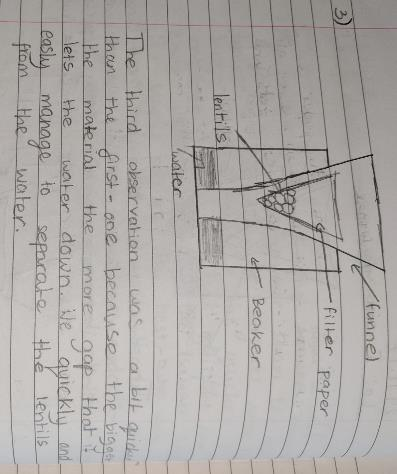 3)
funnel
filter paper
Beaker
lentils
water
The third observation was a bit
than the first-one because the
the material the more gap that
lets the water down. We quickly and
easly manage to separate the lentils
from the water.